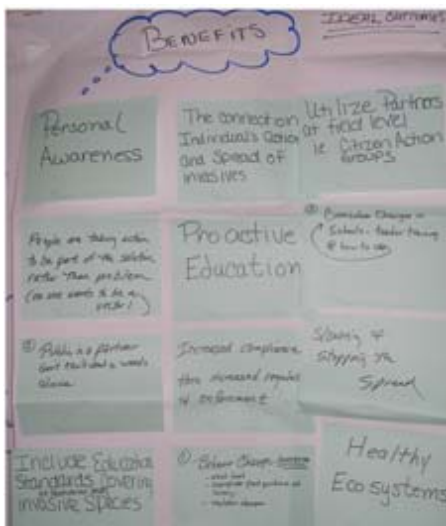 BENEFITS
IDEAL outcomes
Personal
Awareness
The connection
Individual's Action
and Spread of
invasives
Utilize Partners
at field level
ie Citizen Action
Groups
People are taking action
to be part of the solution
rather than problem
(no one wants to be a
vector)
Proactive
Education
Curriculum Changes in
Schools - teacher training
how to use
Public is a partner
alone
Increased compliance
thru increased
& enforcement
Slowing &
stopping the
Spread
Include Education
Standards Covering
invasive Species
Behavior Change
Healthy
Ecosystems